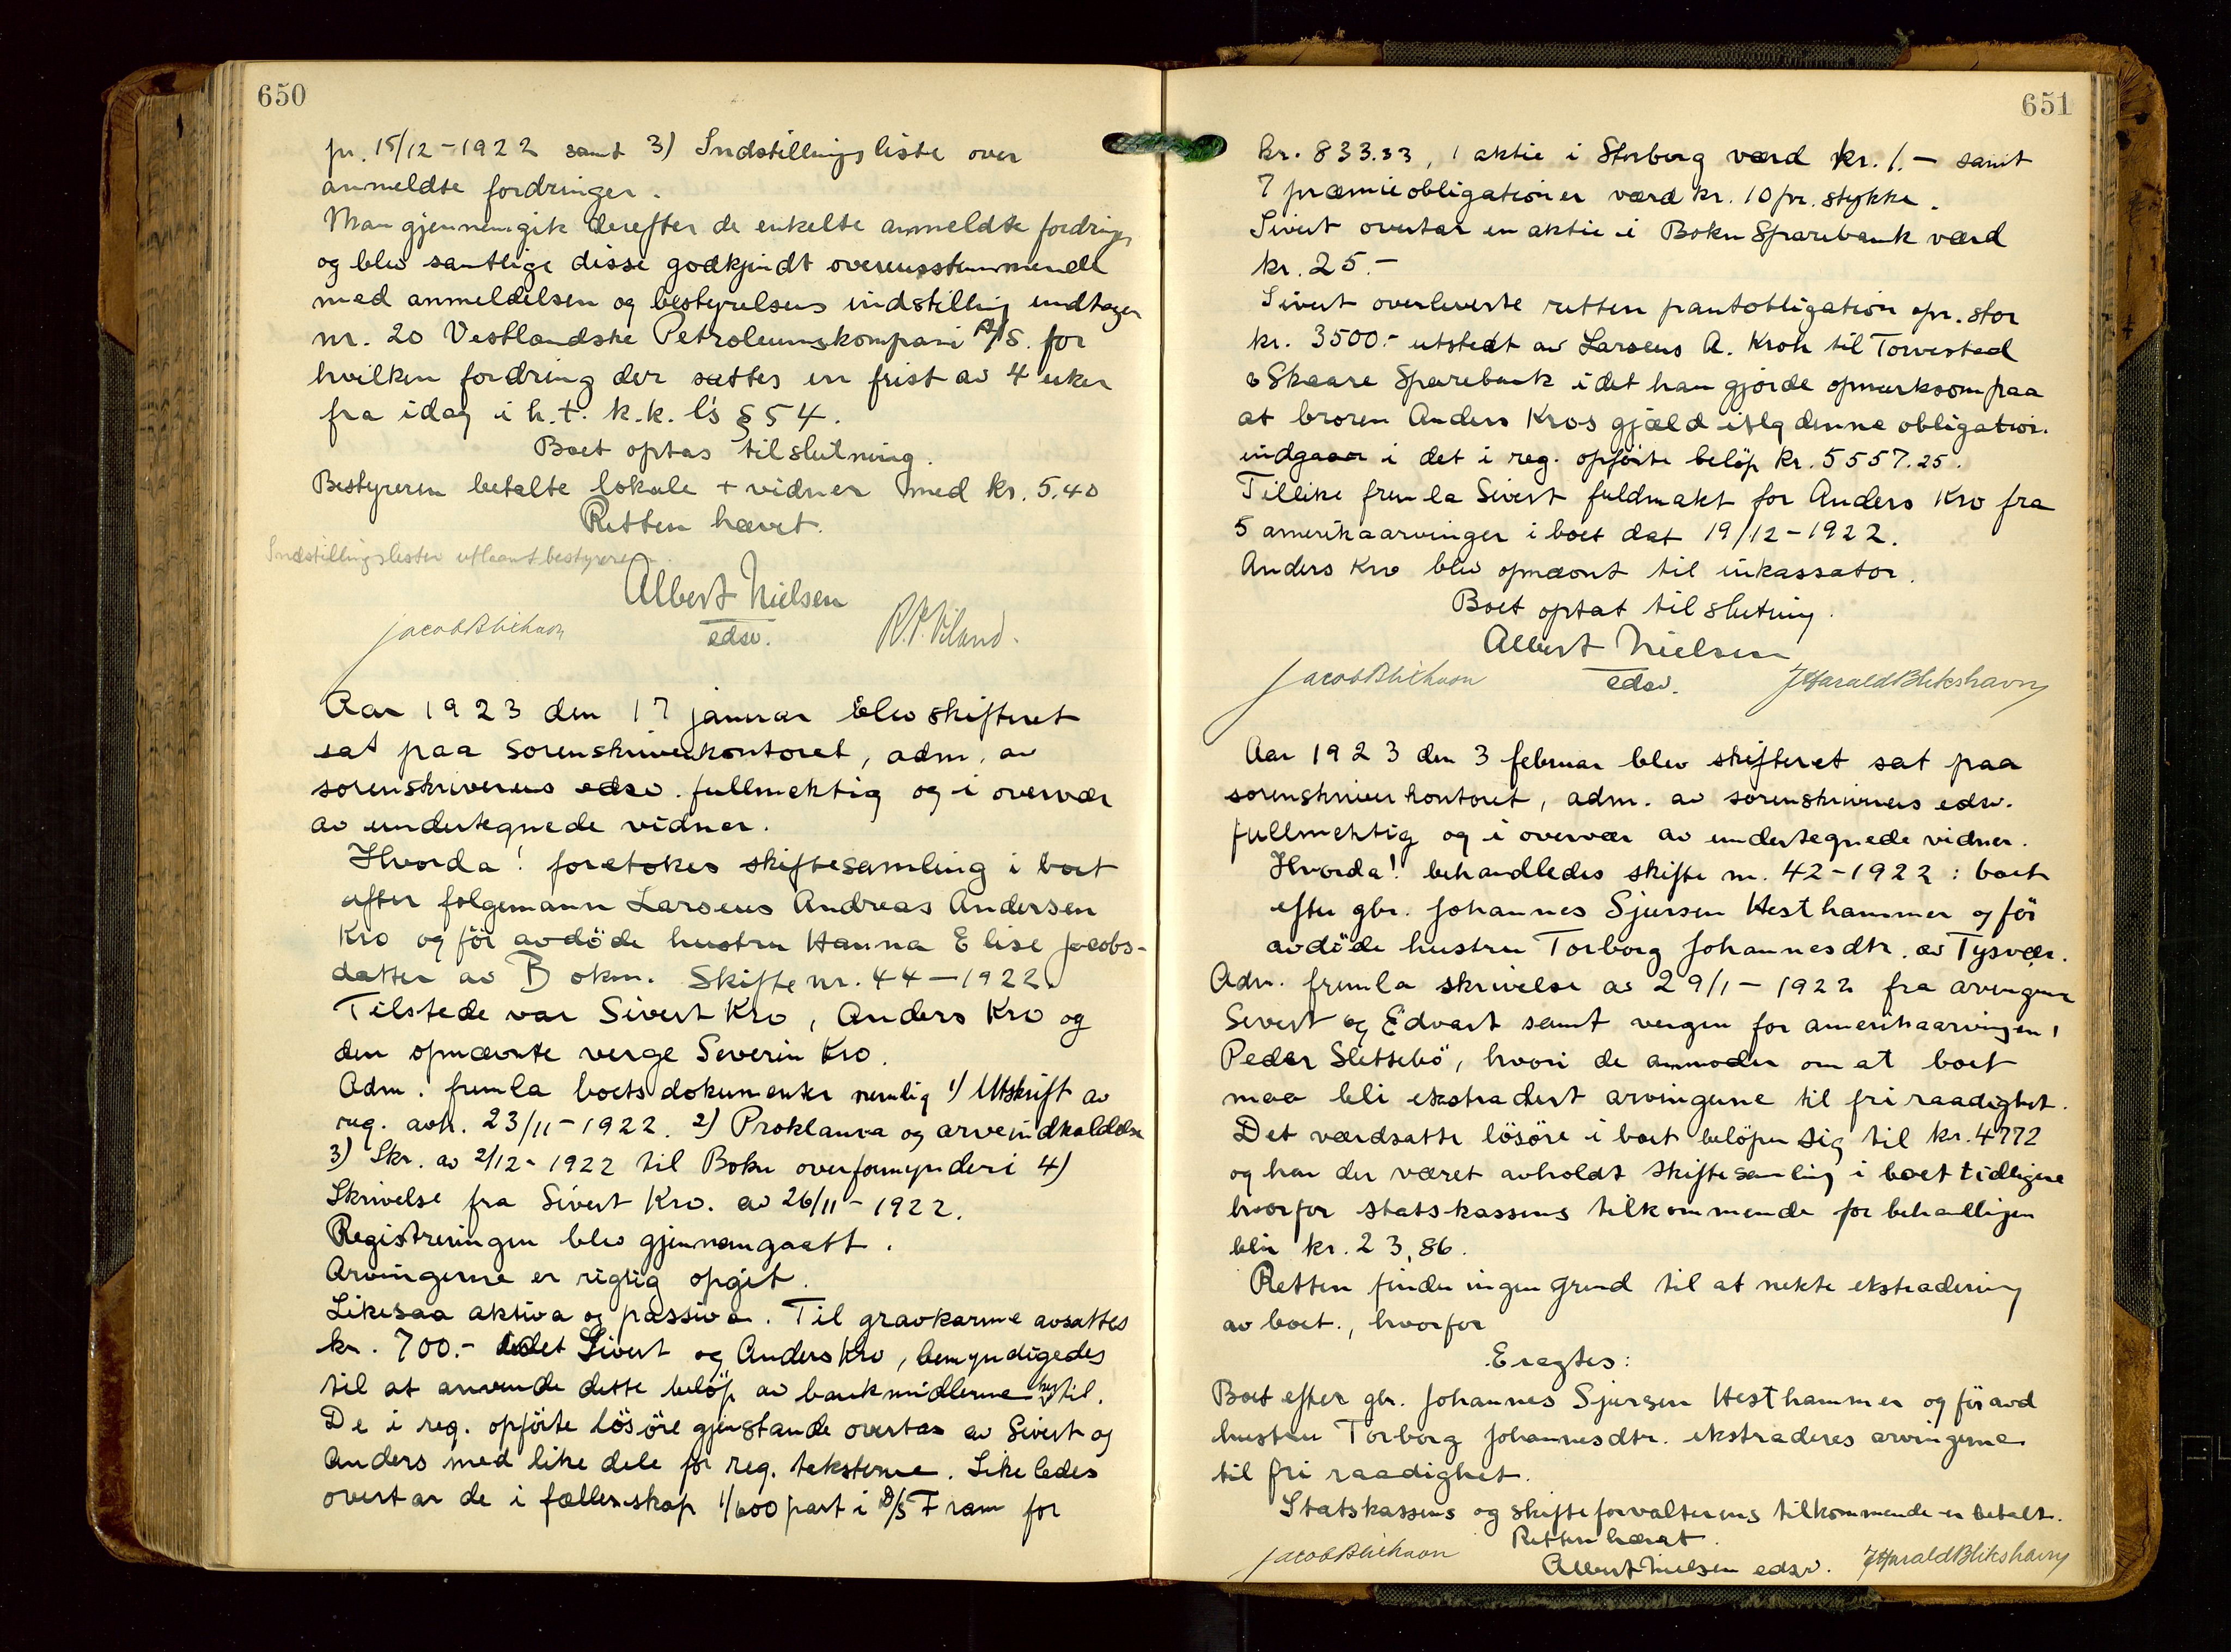 650
pr. 15/12-1922 samt 3) Indstillingsliste over
anmeldte fordringer.
Man gjennemgik derefter de enkelte anmeldte fordringer
og blev samtlige disse godkjendt overensstemmende
med anmeldelsen og bestyrelsens indstilling undtagen
nr. 20 Vestlandske Petroleumskompani A/S. for
hvilken fordring der sattes en frist av 4 uker
fra idag i h.t. k.k. l's § 54.
Boet optas til slutning.
Bestyreren betalte lokale + vidner med kr. 5.40
Retten hævet.
Indstillingslisten utlaant bestyreren
Albert Nielsen
Jacob Blikhavn edsv.
Aar 1923 den 17 januar blev skifteret
sat paa sorenskriverkontoret, adm. av
sorenskriverens edsv. fullmektig og i overvær
av undertegnede vidner.
Hvorda! foretokes skiftesamling i boet
efter folgemann Larsens Andreas Andersen
Kro og för avdöde hustru Hanna Elise Jacobs-
datter av Bokn. Skifte nr. 44-1922
Tilstede var Sivert Kro, Anders Kro og
den opnævnte verge Severin Kro.
Adm. fremla boets dokumenter nemlig 1) Utskrift av
reg. avh. 23/11-1922. 2) Proklama og arveindkaldelse
3) Skr. av 2/12-1922 til Bokn overformynderi 4)
Skrivelse fra Sivert Kro. av 26/11-1922.
Registreringen blev gjennemgaatt.
Arvingerne er rigtig opgit.
Likesaa aktiva og passiva. Til gravkarme avsattes
kr. 700.- idet Sivert og Anders Kro, bemyndigedes
til at anvende dette belöp av bankmidlerne hertil.
De i reg. opförte lösöre gjenstande overtas av Sivert og
Anders med like dele for reg. taksterne. Likeledes
overtar de i fællesskap 1/600 part i D/S Fram for
651
kr. 833.33, 1 aktie i Storberg værd kr. 1.- samt
7 præmieobligationer værd kr. 10 pr. stykke.
Sivert overtar en aktie i Bokn Sparebank værd
kr. 25.-
Sivert overleverte retten pantobligation opr. stor
kr. 3500.- utstedt av Larsens A. Kroh til Torvestad
& Skaare Sparebank idet han gjorde opmerksom paa
at broren Anders Kros gjæld iflg denne obligation
indgaar i det i reg. opförte belöp kr. 5557.25.
Tillike fremla Sivert fuldmakt for Anders Kro fra
5 amerikaarvinger i boet dat 19/12-1922.
Anders Kro blev opnævnt til inkassator.
Boet optat til slutning.
Albert Nielsen
Jacob Blikhavn edsv. J Harald Blikshavn
Aar 1923 den 3 februar blev skifteret sat paa
sorenskriverkontoret, adm. av sorenskriverens edsv.
fullmektig og i overvær av undertegnede vidner.
Hvorda! behandledes skifte nr. 42-1922: boet
efter gbr. Johannes Sjursen Hesthammer og för
avdöde hustru Torborg Johannesdtr. av Tysvær.
Adm. fremla skrivelse av 29/1-1922 fra arvingene
Sivert og Edvart samt vergen for amerikaarvingen,
Peder Sletsebö, hvori de anmoder om at boet
maa bli ekstradert arvingerne til fri raadighet.
Det værdsatte lösöre i boet belöper sig til kr. 4772
og har der været avholdt skiftesamling i boet tidligere
hvorfor statskassens tilkommende for behandlingen
blir kr. 23,86.
Retten finder ingen grund til at nekte ekstradering
av boet., hvorfor
Eragtes:
Boet efter gbr. Johannes Sjursen Hesthammer og för avd
hustru Torborg Johannesdtr. ekstraderes arvingerne
til fri raadighet.
Statskassens og skifteforvalterens tilkommende er betalt.
Retten hævet.
Jacob Blikhavn Albert Nielsen edsv. J Harald Blikshavn